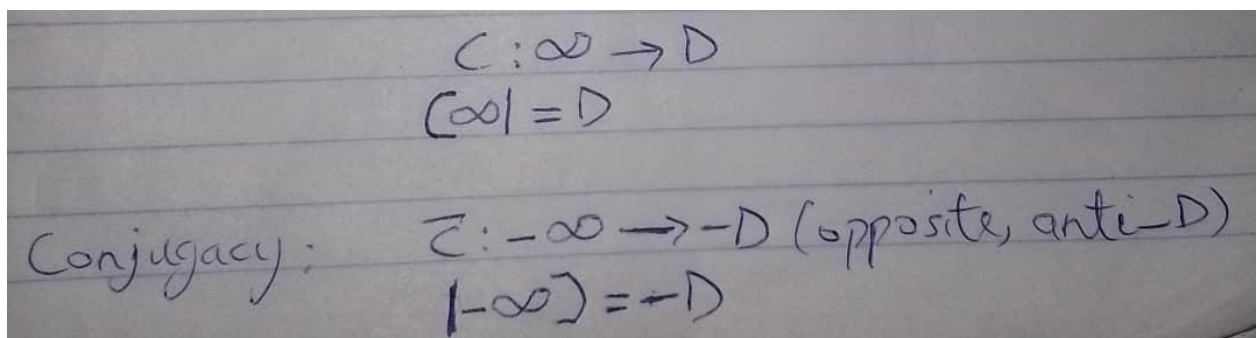 C : ∞ → D
(∞| = D
Conjugacy: C̅ : -∞ → -D (opposite, anti-D)
|-∞) = -D